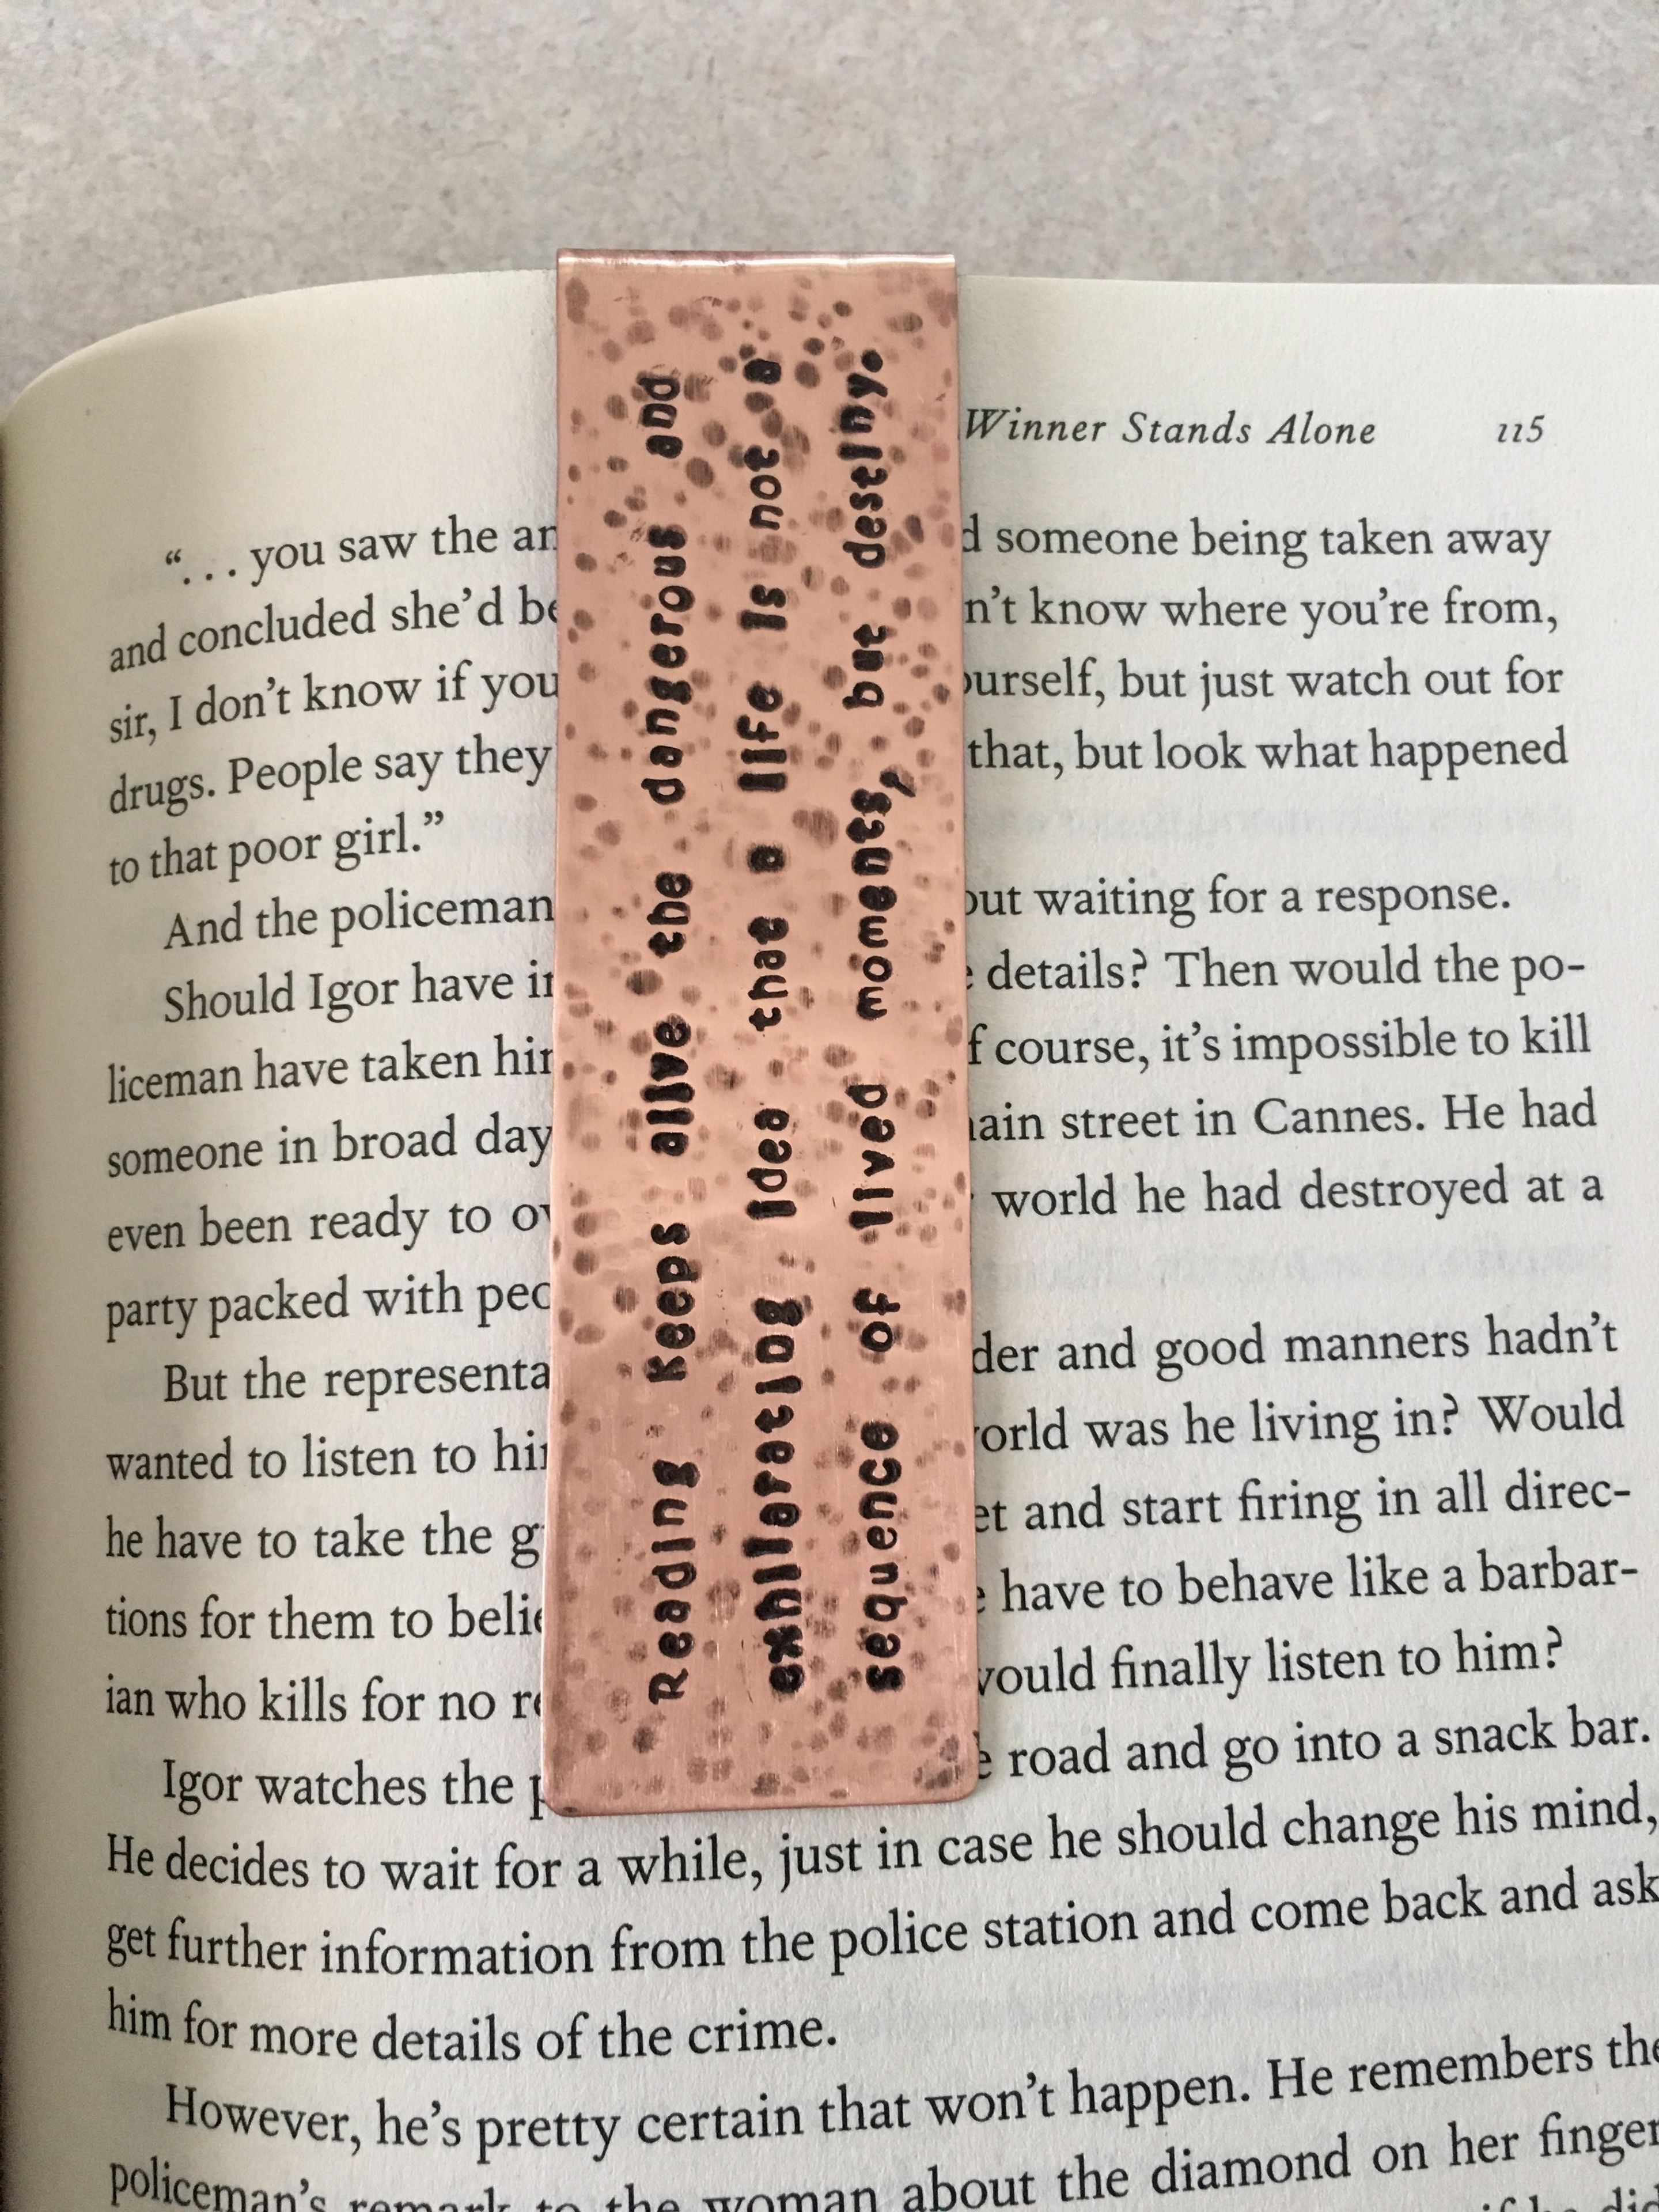 Winner Stands Alone 115
“. . . you saw the d someone being taken away
and concluded she’d n’t know where you’re from,
sir, I don’t know if you ourself, but just watch out for
drugs. People say they that, but look what happened
to that poor girl.”
And the policeman out waiting for a response.
Should Igor have details? Then would the po-
liceman have taken f course, it’s impossible to kill
someone in broad day ain street in Cannes. He had
even been ready to world he had destroyed at a
party packed with
But the representa der and good manners hadn’t
wanted to listen to orld was he living in? Would
he have to take the et and start firing in all direc-
tions for them to have to behave like a barbar-
ian who kills for no would finally listen to him?
Igor watches the road and go into a snack bar.
He decides to wait for a while, just in case he should change his mind,
get further information from the police station and come back and ask
him for more details of the crime.
However, he’s pretty certain that won’t happen. He remembers the
policeman’s remark to the woman about the diamond on her finger
if he did
Reading keeps alive the dangerous and
exhilarating idea that a life is not a
sequence of lived moments, but destiny.